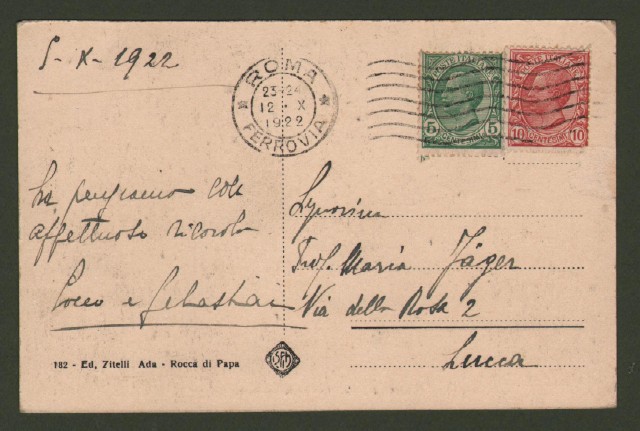 5-X-1922
ROMA
23-24
12·X
1922
FERROVIA
POSTE ITALIANE
5 5
CENTESIMI
POSTE ITALIANE
10 10
CENTESIMI
La pensiamo con
affettuoso ricordo
Rocco e Sebastian
Signorina
Prof. Maria Jäger
Via della Rosa 2
Lucca
182 - Ed. Zitelli Ada - Rocca di Papa